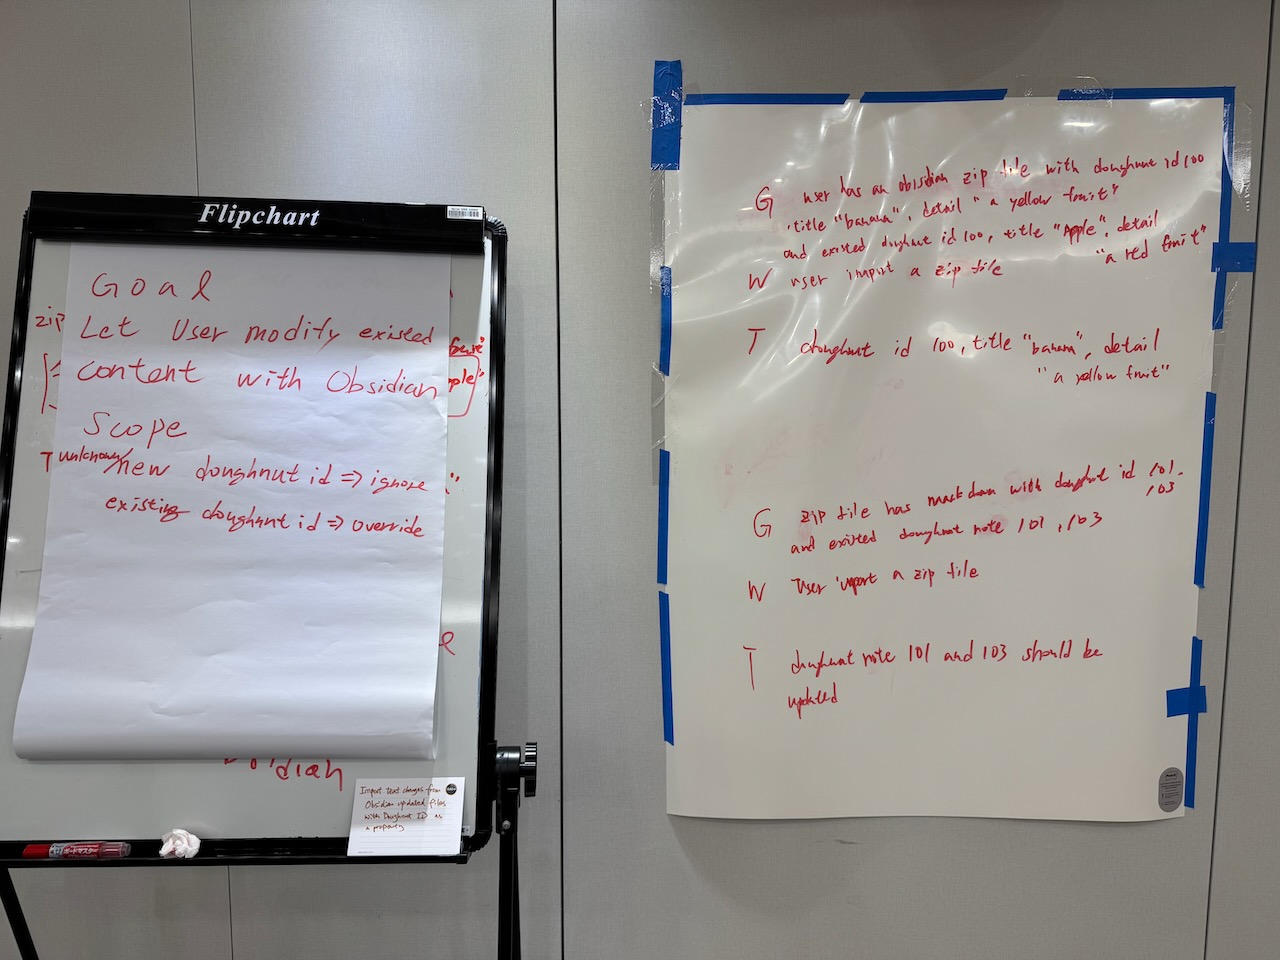 Flipchart
Goal
Let User modify existed
content with Obsidian
Scope
unknown/new doughnut id => ignore
existing doughnut id => override
zip
T
Import text changes from
Obsidian updated files
with Doughnut ID as
a property
G user has an obsidian zip file with doughnut id 100
, title "banana", detail "a yellow fruit"
and existed doughnut id 100, title "Apple", detail
"a red fruit"
W user import a zip file
T doughnut id 100, title "banana", detail
"a yellow fruit"
G zip file has markdown with doughnut id 101,
103
and existed doughnut note 101, 103
W User import a zip file
T doughnut note 101 and 103 should be
updated